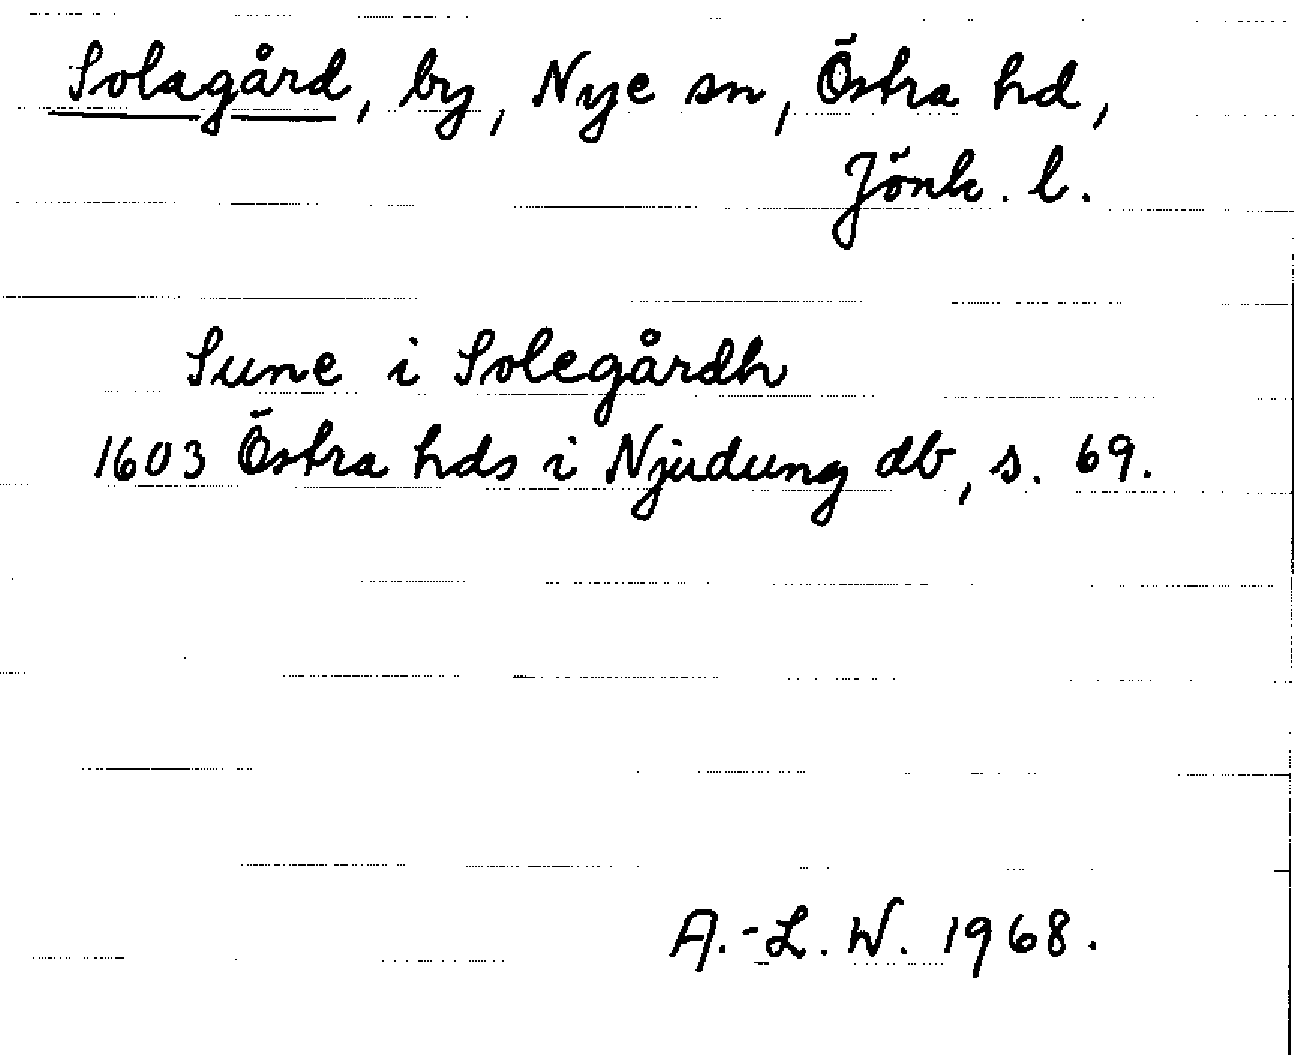 Solagård, by, Nye sn, Östra hd,
Jönk. l.
Sune i Solegårdh
1603 Östra hds i Njudung db, s. 69.
A.-L. W. 1968.